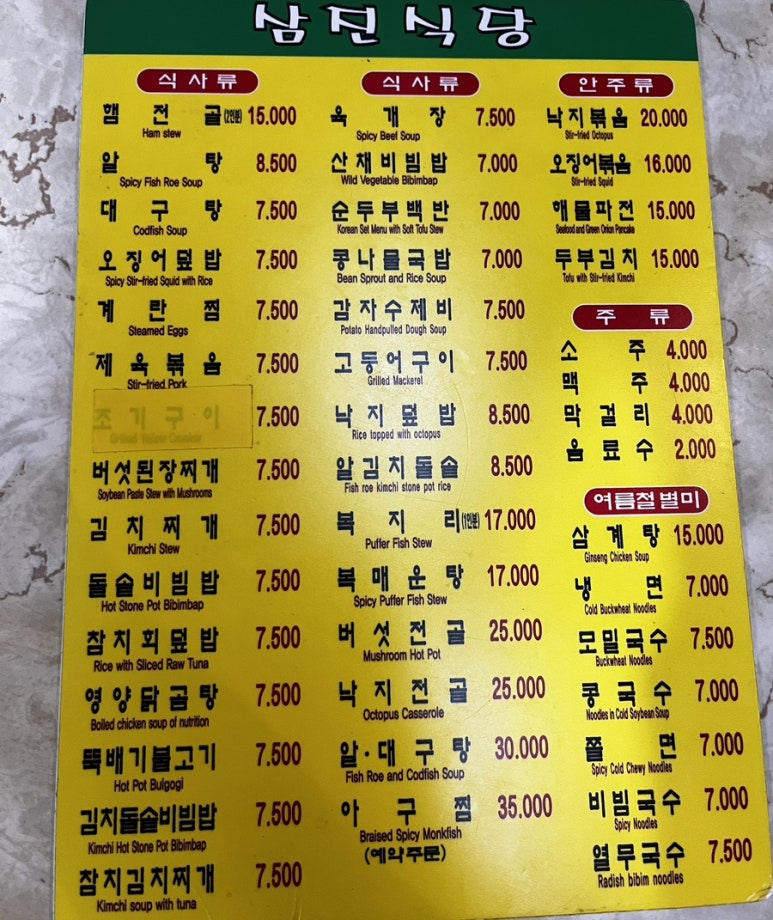 삼진식당
식사류
햄전골(2인분) 15.000
Ham stew
알탕 8.500
Spicy Fish Roe Soup
대구탕 7.500
Codfish Soup
오징어덮밥 7.500
Spicy Stir-fried Squid with Rice
계란찜 7.500
Steamed Eggs
제육볶음 7.500
Stir-fried Pork
조기구이 7.500
Grilled Yellow Croaker
버섯된장찌개 7.500
Soybean Paste Stew with Mushrooms
김치찌개 7.500
Kimchi Stew
돌솥비빔밥 7.500
Hot Stone Pot Bibimbap
참치회덮밥 7.500
Rice with Sliced Raw Tuna
영양닭곰탕 7.500
Boiled chicken soup of nutrition
뚝배기불고기 7.500
Hot Pot Bulgogi
김치돌솥비빔밥 7.500
Kimchi Hot Stone Pot Bibimbap
참치김치찌개 7.500
Kimchi soup with tuna
식사류
육개장 7.500
Spicy Beef Soup
산채비빔밥 7.000
Wild Vegetable Bibimbap
순두부백반 7.000
Korean Set Menu with Soft Tofu Stew
콩나물국밥 7.000
Bean Sprout and Rice Soup
감자수제비 7.500
Potato Handpulled Dough Soup
고등어구이 7.500
Grilled Mackerel
낙지덮밥 8.500
Rice topped with octopus
알김치돌솥 8.500
Fish roe kimchi stone pot rice
복지리(1인분) 17.000
Puffer Fish Stew
복매운탕 17.000
Spicy Puffer Fish Stew
버섯전골 25.000
Mushroom Hot Pot
낙지전골 25.000
Octopus Casserole
알·대구탕 30.000
Fish Roe and Codfish Soup
아구찜 35.000
Braised Spicy Monkfish
(예약주문)
안주류
낙지볶음 20.000
Stir-fried Octopus
오징어볶음 16.000
Stir-fried Squid
해물파전 15.000
Seafood and Green Onion Pancake
두부김치 15.000
Tofu with Stir-fried Kimchi
주류
소주 4.000
맥주 4.000
막걸리 4.000
음료수 2.000
여름철별미
삼계탕 15.000
Ginseng Chicken Soup
냉면 7.000
Cold Buckwheat Noodles
모밀국수 7.500
Buckwheat Noodles
콩국수 7.000
Noodles in Cold Soybean Soup
쫄면 7.000
Spicy Cold Chewy Noodles
비빔국수 7.000
Spicy Noodles
열무국수 7.500
Radish bibim noodles